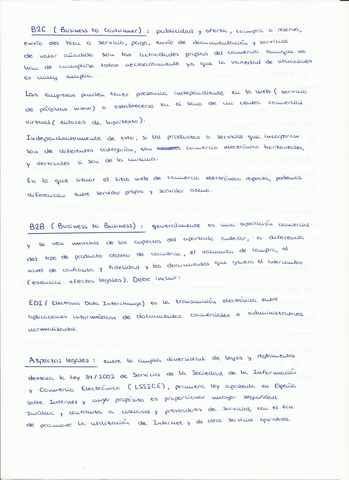 B2C (Business to Consumer): publicidad y oferta, compra o reserva,
envío del bien o servicio, pago, envío de documentación y servicios
de valor añadido son las actividades propias del comercio aunque no
han de cumplirse todas necesariamente ya que la variedad de situaciones
es muy amplia.
Las empresas pueden tener presencia independiente en la web (servicio
de páginas www) o establecerse en el seno de un centro comercial
virtual (enlaces de hipertexto).
Independientemente de esto, si los productos o servicios que incorporan
son de diferentes categorías, son comercio electrónico horizontales,
y verticales si son de la misma.
En lo que situar el sitio web de comercio electrónico respecta, podemos
diferenciar entre servidor propio y servidor ajeno.
B2B (Business to Business): generalmente es una operación comercial
y se ven muchos de los aspectos del apartado anterior, a diferencia
del tipo de producto objeto de comercio, el volumen de compra, el
nivel de confianza y fidelidad y los documentos que genera el intercambio
(esencial efectos legales). Debe incluir:
EDI (Electronic Data Interchange) es la transmisión electrónica entre
aplicaciones informáticas de documentos comerciales o administrativos
normalizados.
Aspectos legales: entre la amplia diversidad de leyes y reglamentos
destaca la Ley 34/2002 de Servicios de la Sociedad de la Información
y Comercio Electrónico (LSSICE), primera ley aprobada en España
sobre Internet y cuyo propósito es proporcionar mayor seguridad
jurídica y confianza a usuarios y prestadores de servicios, con el fin
de promover la utilización de Internet y de otros servicios operativos.